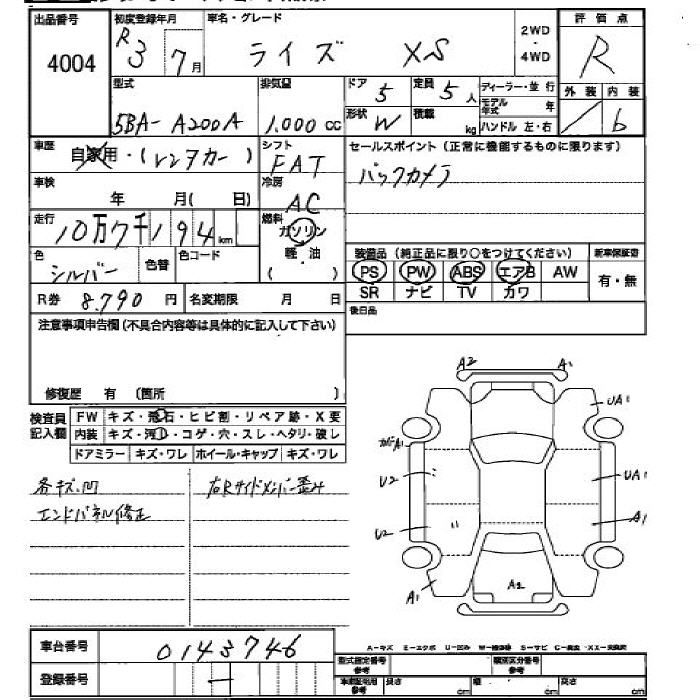 出品番号 4004
初度登録年月 R3 7月
車名・グレード ライズ XS
2WD・4WD
評価点 R
外装 / 内装 6
型式 5BA- A200A
排気量 1,000 cc
ドア 5
定員 5人
ディーラー・並行
形状 W
積載 kg
モデル年式 年
ハンドル 左・右
車歴 自家用・(レンタカー)
シフト FAT
セールスポイント (正常に機能するものに限ります)
バックカメラ
車検 年 月( 日)
冷房 AC
走行 10万7千194km
燃料 ガソリン
軽・油
( )
色 シルバー
色替
色コード
装備品 (純正品に限り○をつけてください)
新車保証書
PS PW ABS エアB AW
有・無
SR ナビ TV カワ
R券 8,790 円
名変期限 月 日
後日品
注意事項申告欄(不具合内容等は具体的に記入して下さい)
修復歴 有 (箇所 )
検査員記入欄
FW キズ・飛石・ヒビ割・リペア跡・X要
内装 キズ・汚レ・コゲ・穴・スレ・ヘタリ・破レ
ドアミラー キズ・ワレ ホイール・キャップ キズ・ワレ
各キズ.凹
右Rサイドメンバー歪み
エンドパネル修正
A2 A1
UA1
カバーA1
U2
UA1
U2
A1
A1
A2
車台番号 0143746
登録番号 —
A－キズ E－エクボ U－凹み
型式指定番号 参考
類別区分番号 参考
長さ cm 幅 cm 高さ cm